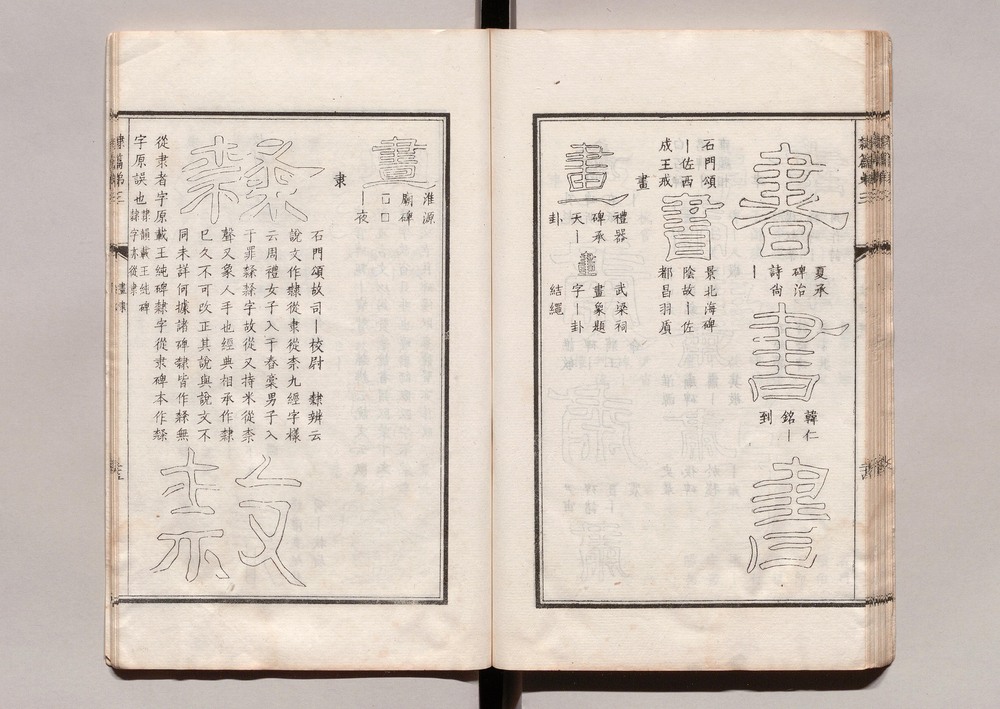 書
夏承
碑治
詩尙
｜
書
韓仁
銘｜
到
書
石門頌
｜佐西
成王戒
書
景北海碑
陰故｜佐
都昌羽原
畫
畫
禮器
碑承
天｜
卦
畫
武梁祠
畫象題
字｜卦
結繩
畫
淮源
廟碑
□□
｜夜
隶
石門頌故司｜校尉 隸辨云
說文作隸從隶從柰九經字樣
云周禮女子入于舂稾男子入
于罪隸隸字故從又持米從柰
聲又象人手也經典相承作隸
已久不可改正其說與說文不
同未詳何據諸碑隸皆作隸無
從隶者字原載王純碑隸字從隶碑本作隸
字原誤也隸韻載王純碑
隸字亦從隶
畫隶